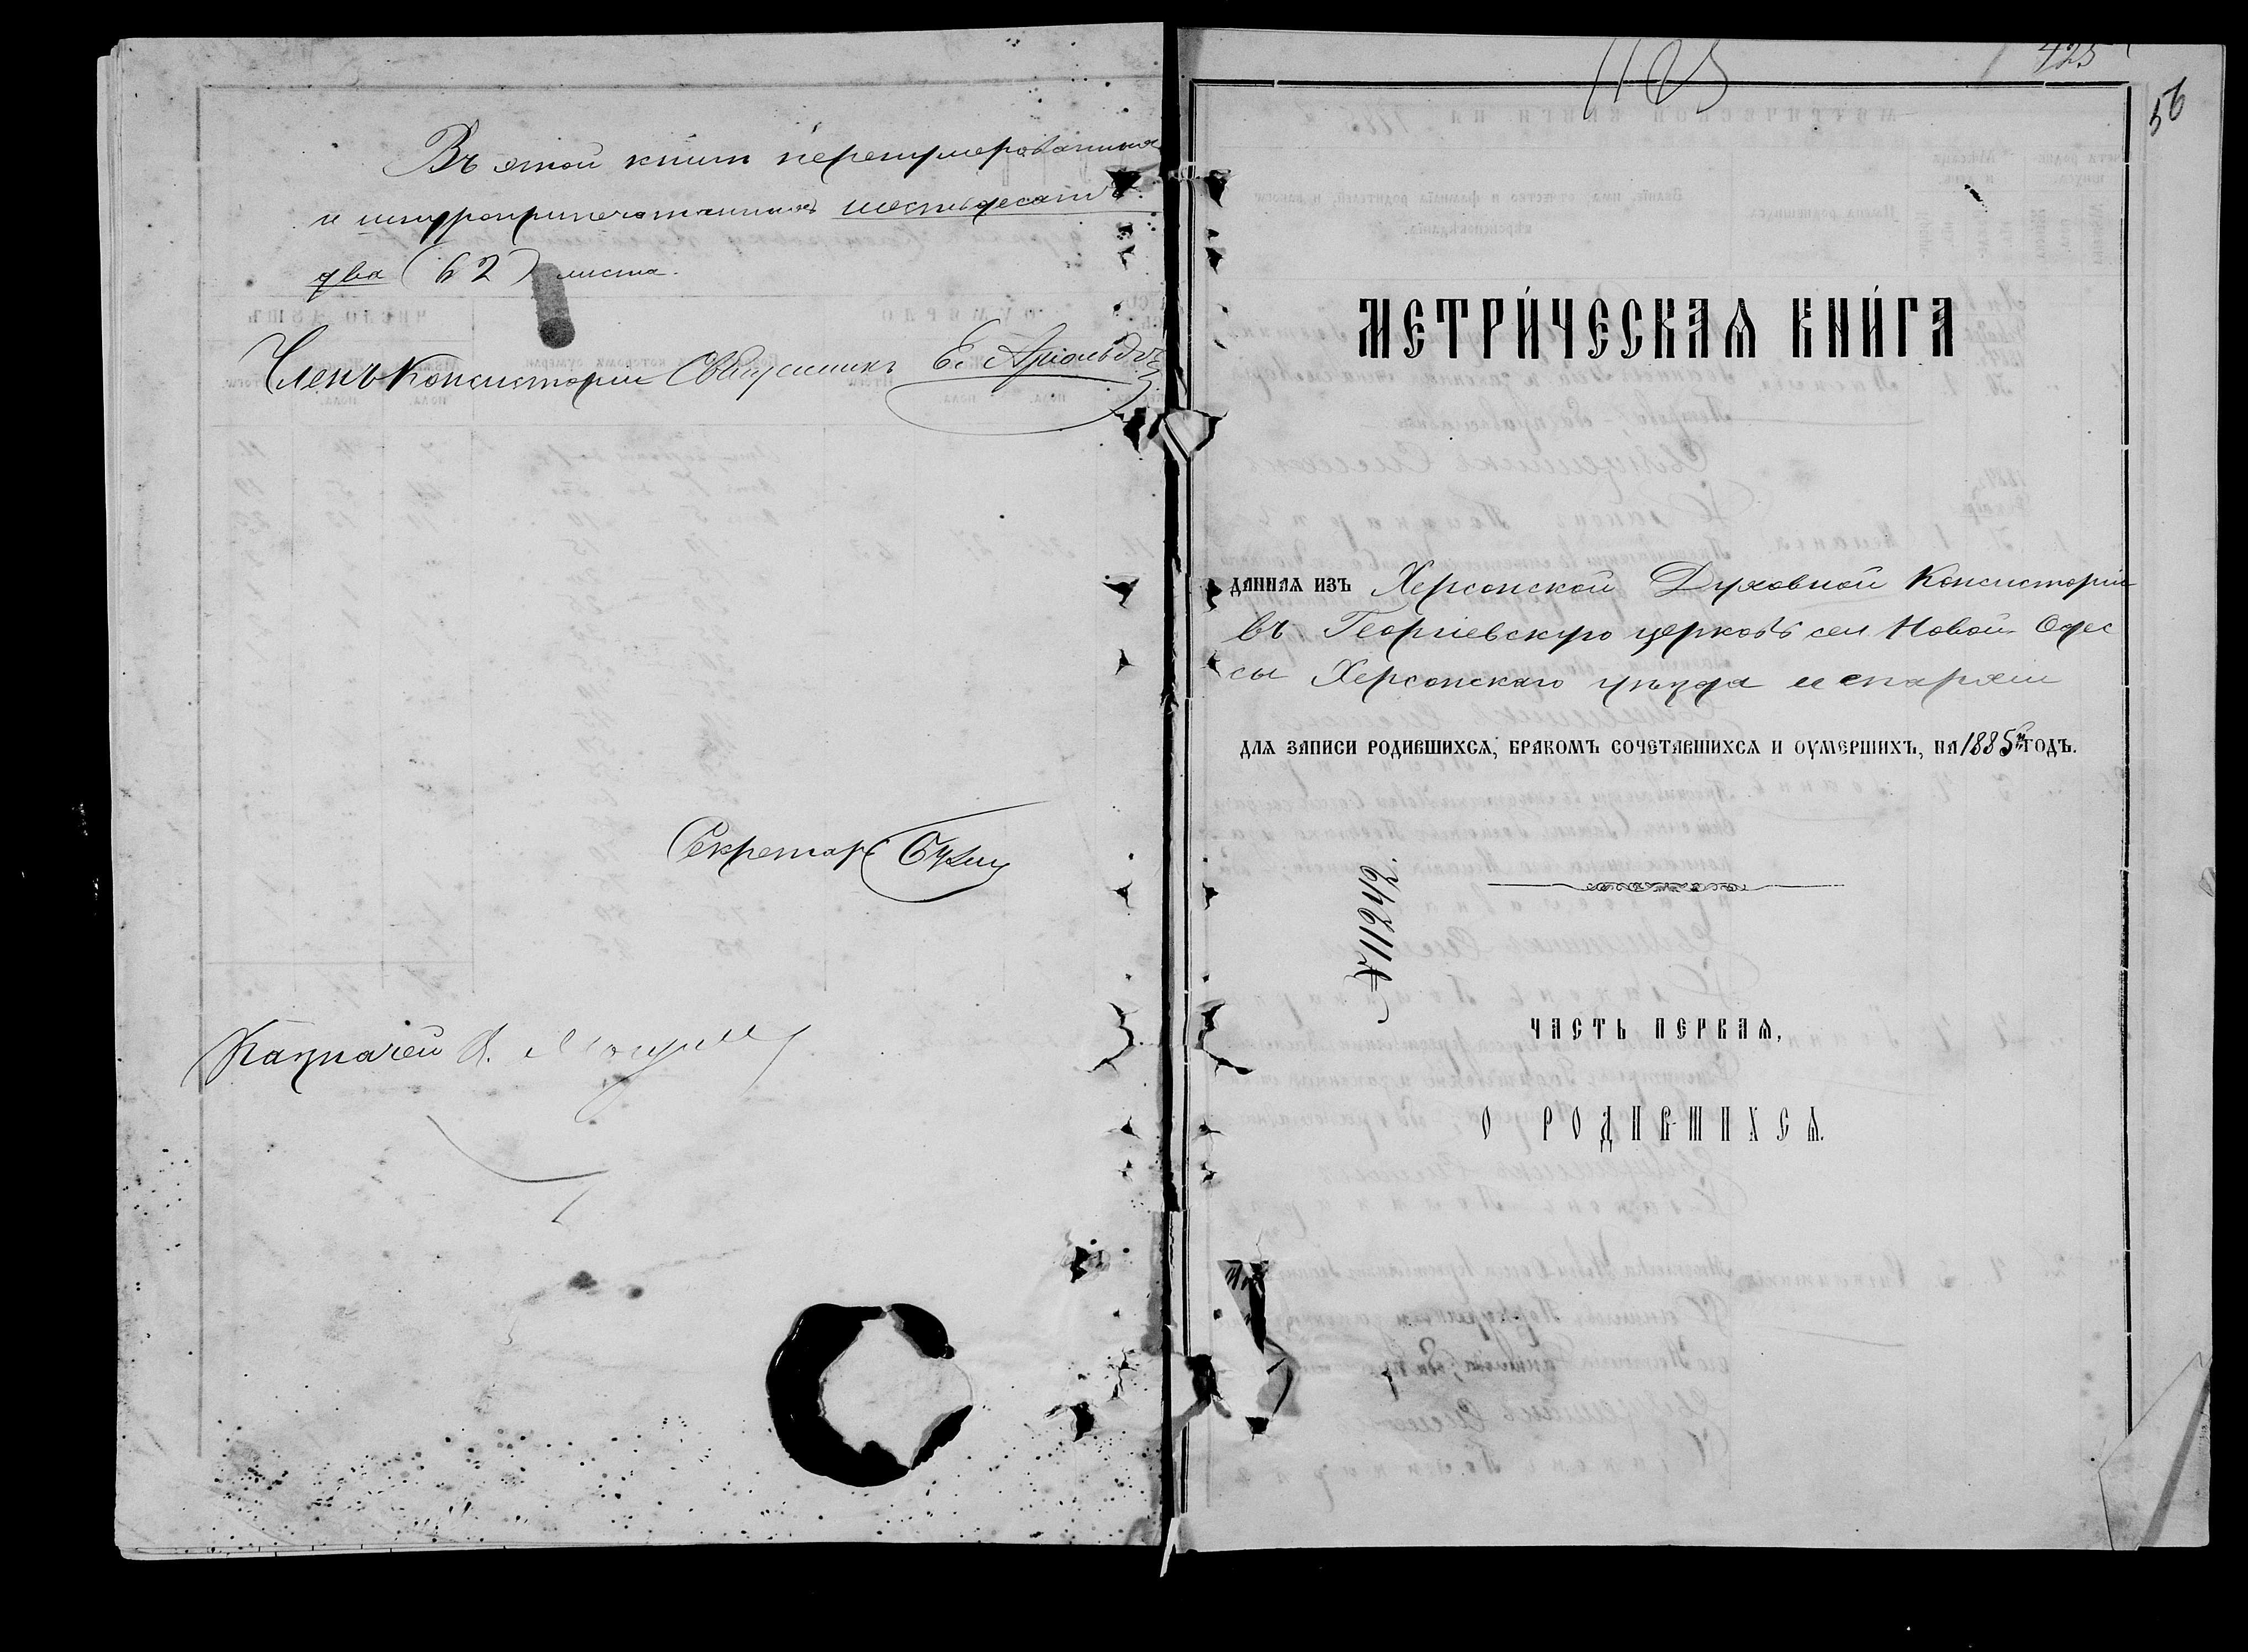 Въ этой книгѣ перенумерованныхъ
и шнуроприпечатанныхъ шестьдесятъ
два (62) листа.
Членъ Консисторіи Священникъ
Секретарь
Казначей
1165
425
56
МЕТРИ́ЧЕСКАѦ КНИ́ГА
ДАННАѦ ИЗЪ Херсонской Духовной Консисторіи
въ Георгіевскую церковь сел. Новой Одес
сы Херсонскаго уѣзда и епархіи
ДЛѦ ЗАПИСИ РОДИВШИХСѦ, БРАКОМЪ СОЧЕТАВШИХСѦ И ОУМЕРШИХЪ, НА 1885й ГОДЪ.
11242.
ЧАСТЬ ПЕРВАѦ,
О РОДИВШИХСѦ.